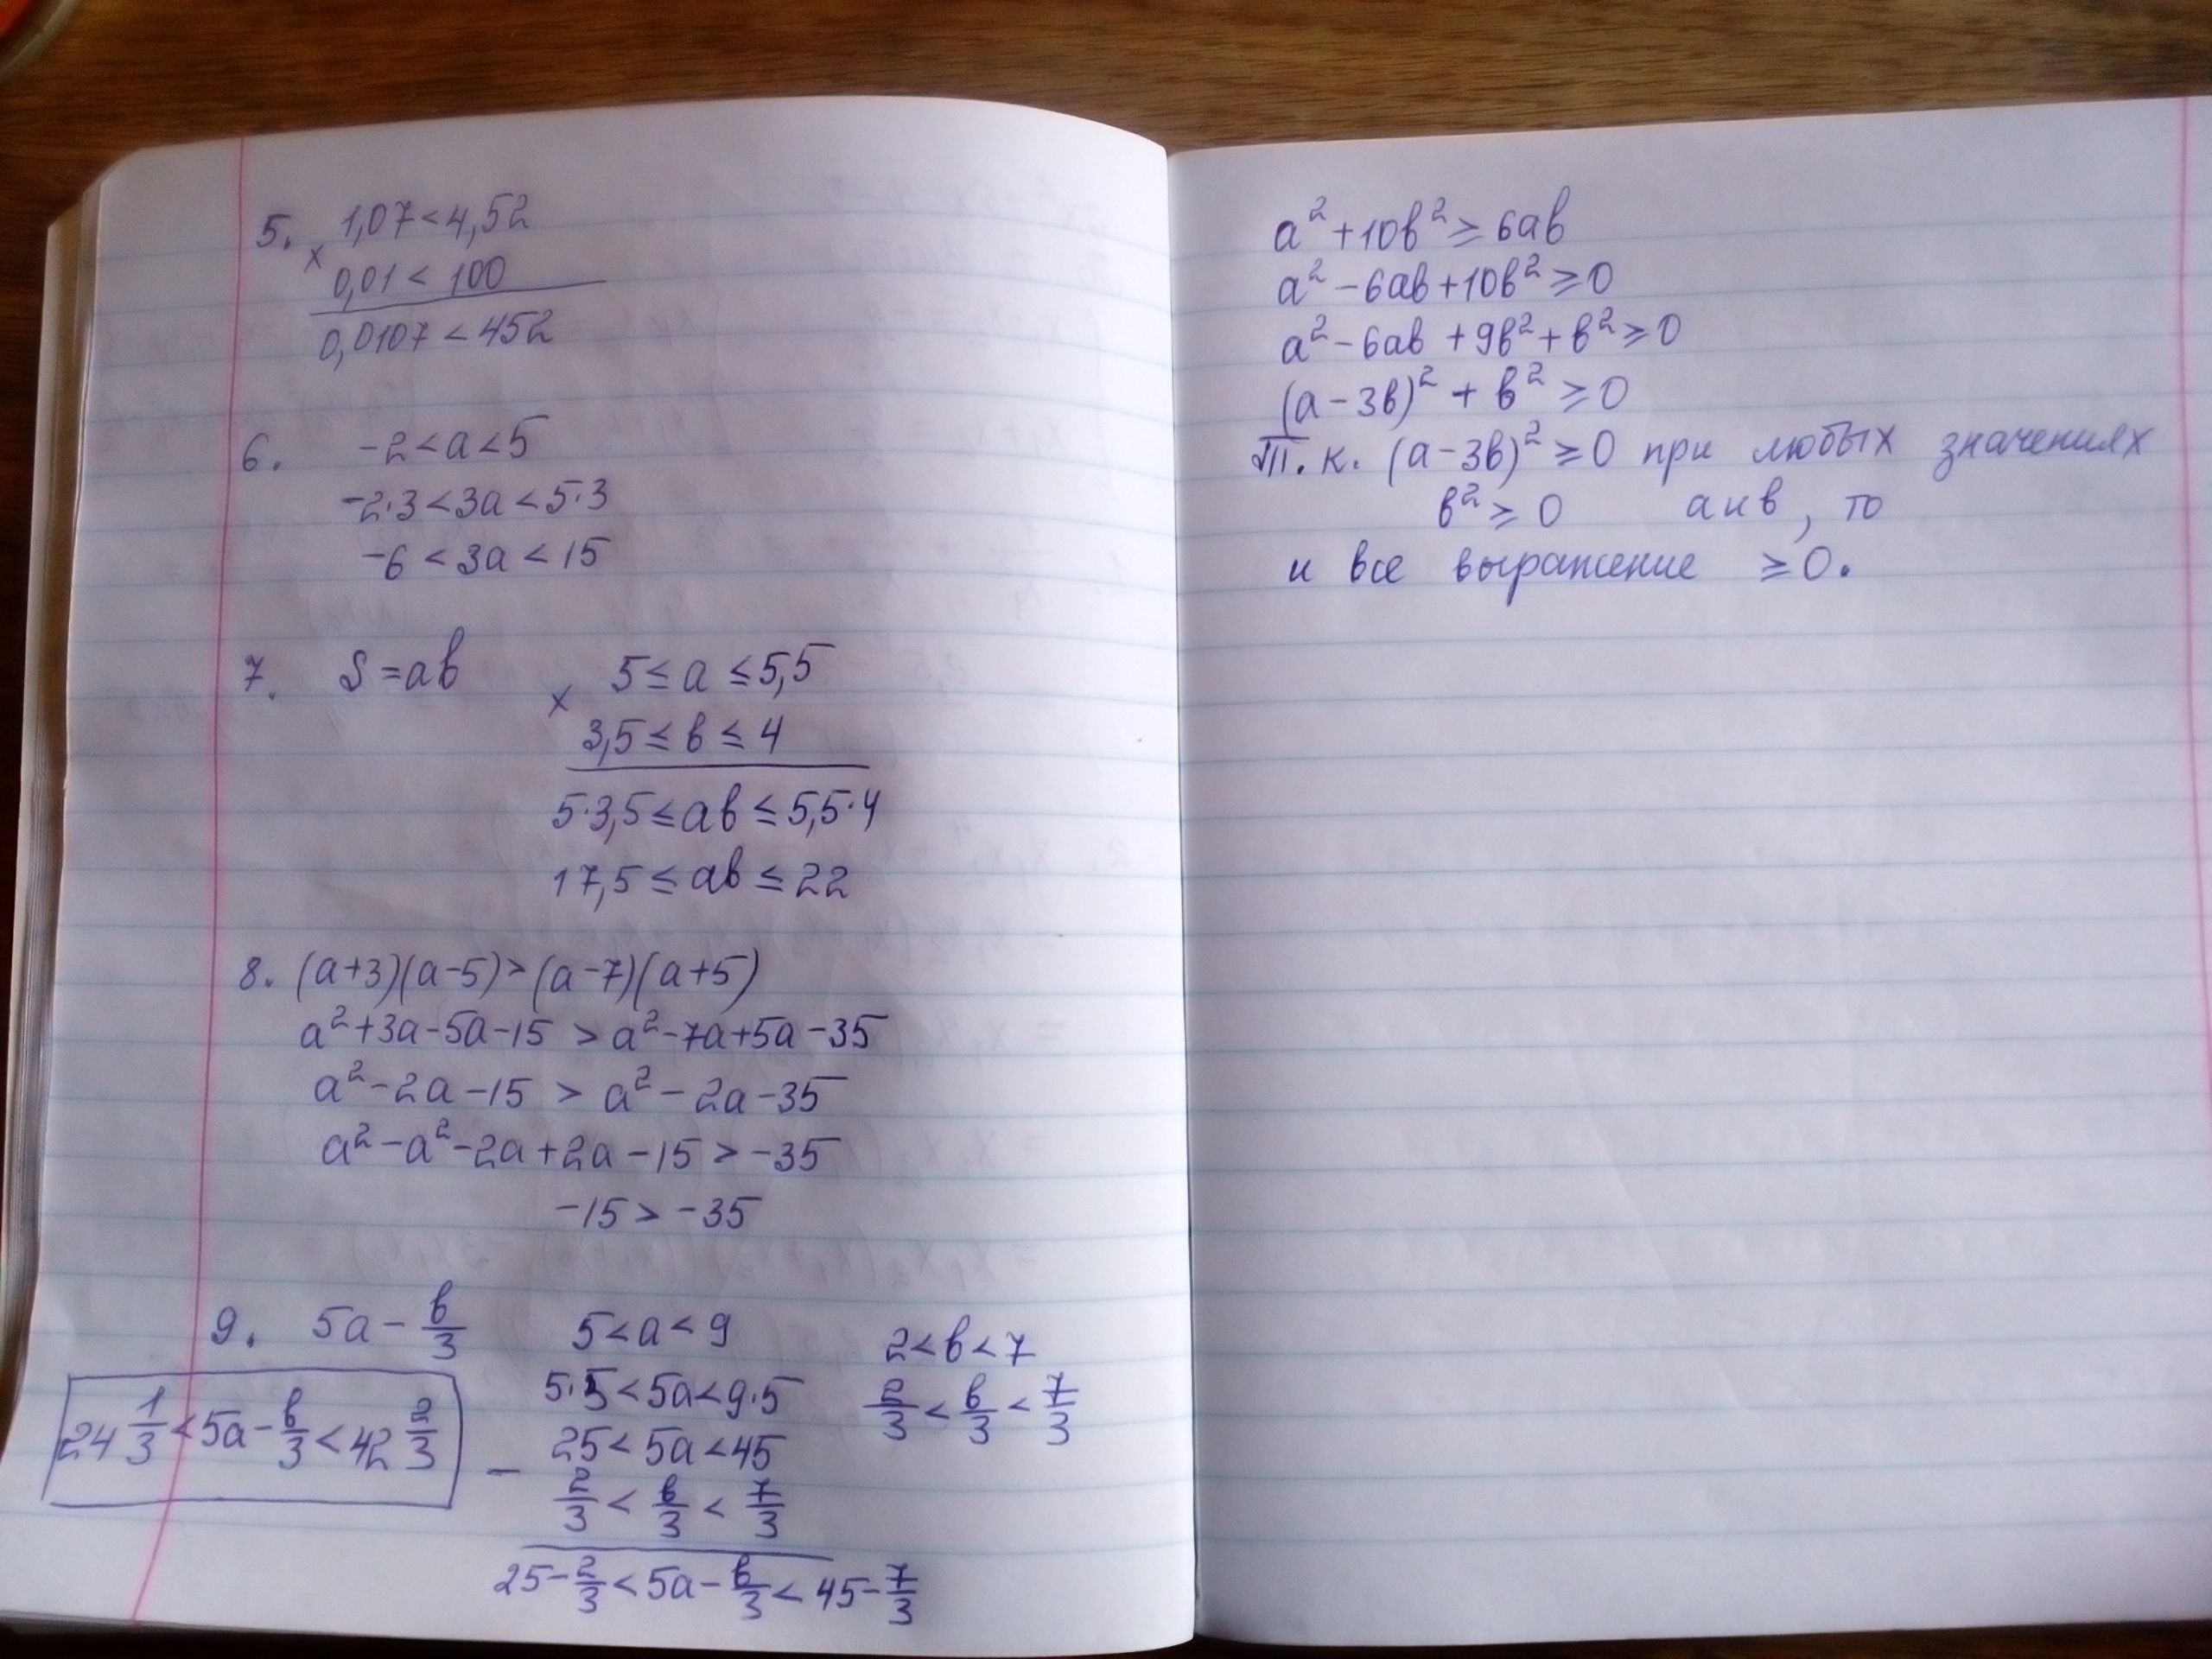 5. 1,07 < 4,52
× 0,01 < 100
0,0107 < 452
6. -2 < a < 5
-2·3 < 3a < 5·3
-6 < 3a < 15
7. S = ab
5 ≤ a ≤ 5,5
× 3,5 ≤ b ≤ 4
5·3,5 ≤ ab ≤ 5,5·4
17,5 ≤ ab ≤ 22
8. (a+3)(a-5) > (a-7)(a+5)
a² + 3a - 5a - 15 > a² - 7a + 5a - 35
a² - 2a - 15 > a² - 2a - 35
a² - a² - 2a + 2a - 15 > -35
-15 > -35
9. 5a - b/3
5 < a < 9
5·5 < 5a < 9·5
25 < 5a < 45
- 2/3 < b/3 < 7/3
25 - 2/3 < 5a - b/3 < 45 - 7/3
2 < b < 7
2/3 < b/3 < 7/3
24 1/3 < 5a - b/3 < 42 2/3
a² + 10b² ≥ 6ab
a² - 6ab + 10b² ≥ 0
a² - 6ab + 9b² + b² ≥ 0
(a - 3b)² + b² ≥ 0
Т.к. (a - 3b)² ≥ 0 при любых значениях
b² ≥ 0 a и b, то
и все выражение ≥ 0.